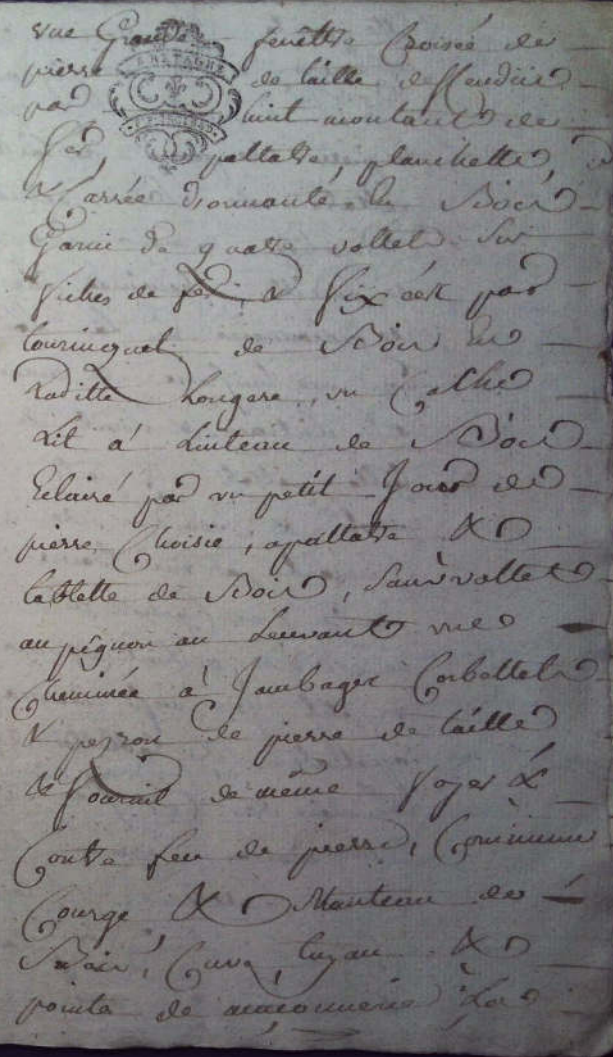 une Grande fenêttre Croisée de
pierre de taille deffendüe
par huit montants de
fer, pallatre, planchette,
& Carrée dormante de Bois
Garni de quatre vollets sur
fiches de fer, & fix ées par
tourincquet de Bois en
Laditte Longere, un Cache
Lit à Linteau de Bois
Eclairé par un petit Jour de
pierre Choisie, apallatre &
tablette de Bois, sans vollet
au pignon au Levant une
Cheminée à Jambages Corbellets
& perron de pierre de taille
& fournit de même foyer &
Contre feu de pierre, Comminne
Courge, & Manteau de
Bois, Cuve, tuyau &
pointe de maçonnerie La
BRETAGNE